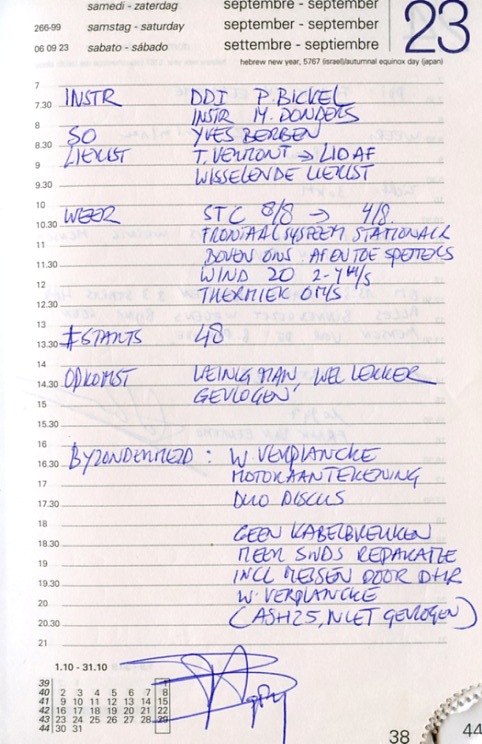 samedi - zaterdag
septembre - september
266-99 samstag - saturday
september - september
06 09 23 sabato - sábado
settembre - septiembre
23
hebrew new year, 5767 (israel)/autumnal equinox day (japan)
7
7.30 INSTR DDI P. BICKEL
INSTR M. DONDERS
8
SO YVES BERBEN
8.30
LIERIST T. VERMONT → LIDAF
9
WISSELENDE LIERIST
9.30
10
WEER STC 8/8 → 4/8.
10.30
FRONTAALSYSTEEM STATIONAIR
11
BOVEN ONS AF EN TOE SPETTERS
11.30
WIND 20 2-4 M/S
12
THERMIEK 0 M/S
12.30
13
13.30 #STARTS 48
14
OPKOMST WEINIG MAN, WEL LEKKER
14.30
GEVLOGEN!
15
15.30
16
BYZONDERHEID : W. VERPLANCKE
16.30
MOTORAANTEKENING
17
DUO DISCUS
17.30
18
GEEN KABELBREUKEN
18.30
MEER SINDS REPARATIE
19
INCL MESSEN DOOR DHR
19.30
W. VERPLANCKE
20
(ASH25, NIET GEVLOGEN)
20.30
21
1.10 - 31.10
39 1
40 2 3 4 5 6 7 8
41 9 10 11 12 13 14 15
42 16 17 18 19 20 21 22
43 23 24 25 26 27 28 29
44 30 31
38
44